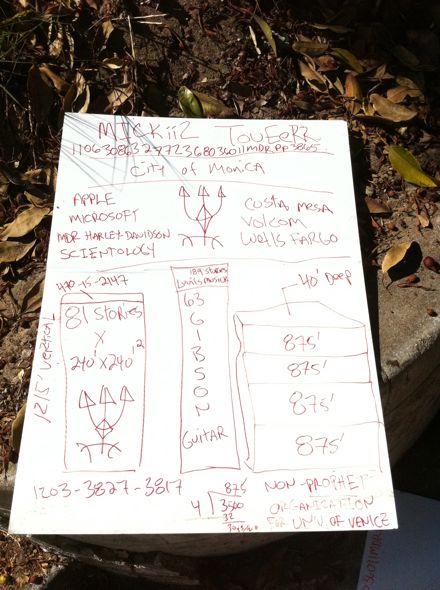 MICKiiZ TOWEERZ
City of Monica
APPLE
MICROSOFT
MDR HARLEY-DAVIDSON
SCIENTOLOGY
COSTA MESA
VOLCOM
Wells FARGO
81 STORIES
X
240'X240'²
12/15 VERTICAL
189 STORIES
MUSICK
63
G
I
B
S
O
N
GUITAR
40' Deep
875'
875'
875'
875'
1203-3827-3817
875
4 3500
32
NON-PROPHET
ORGANIZATION
FOR UNIV. OF VENICE